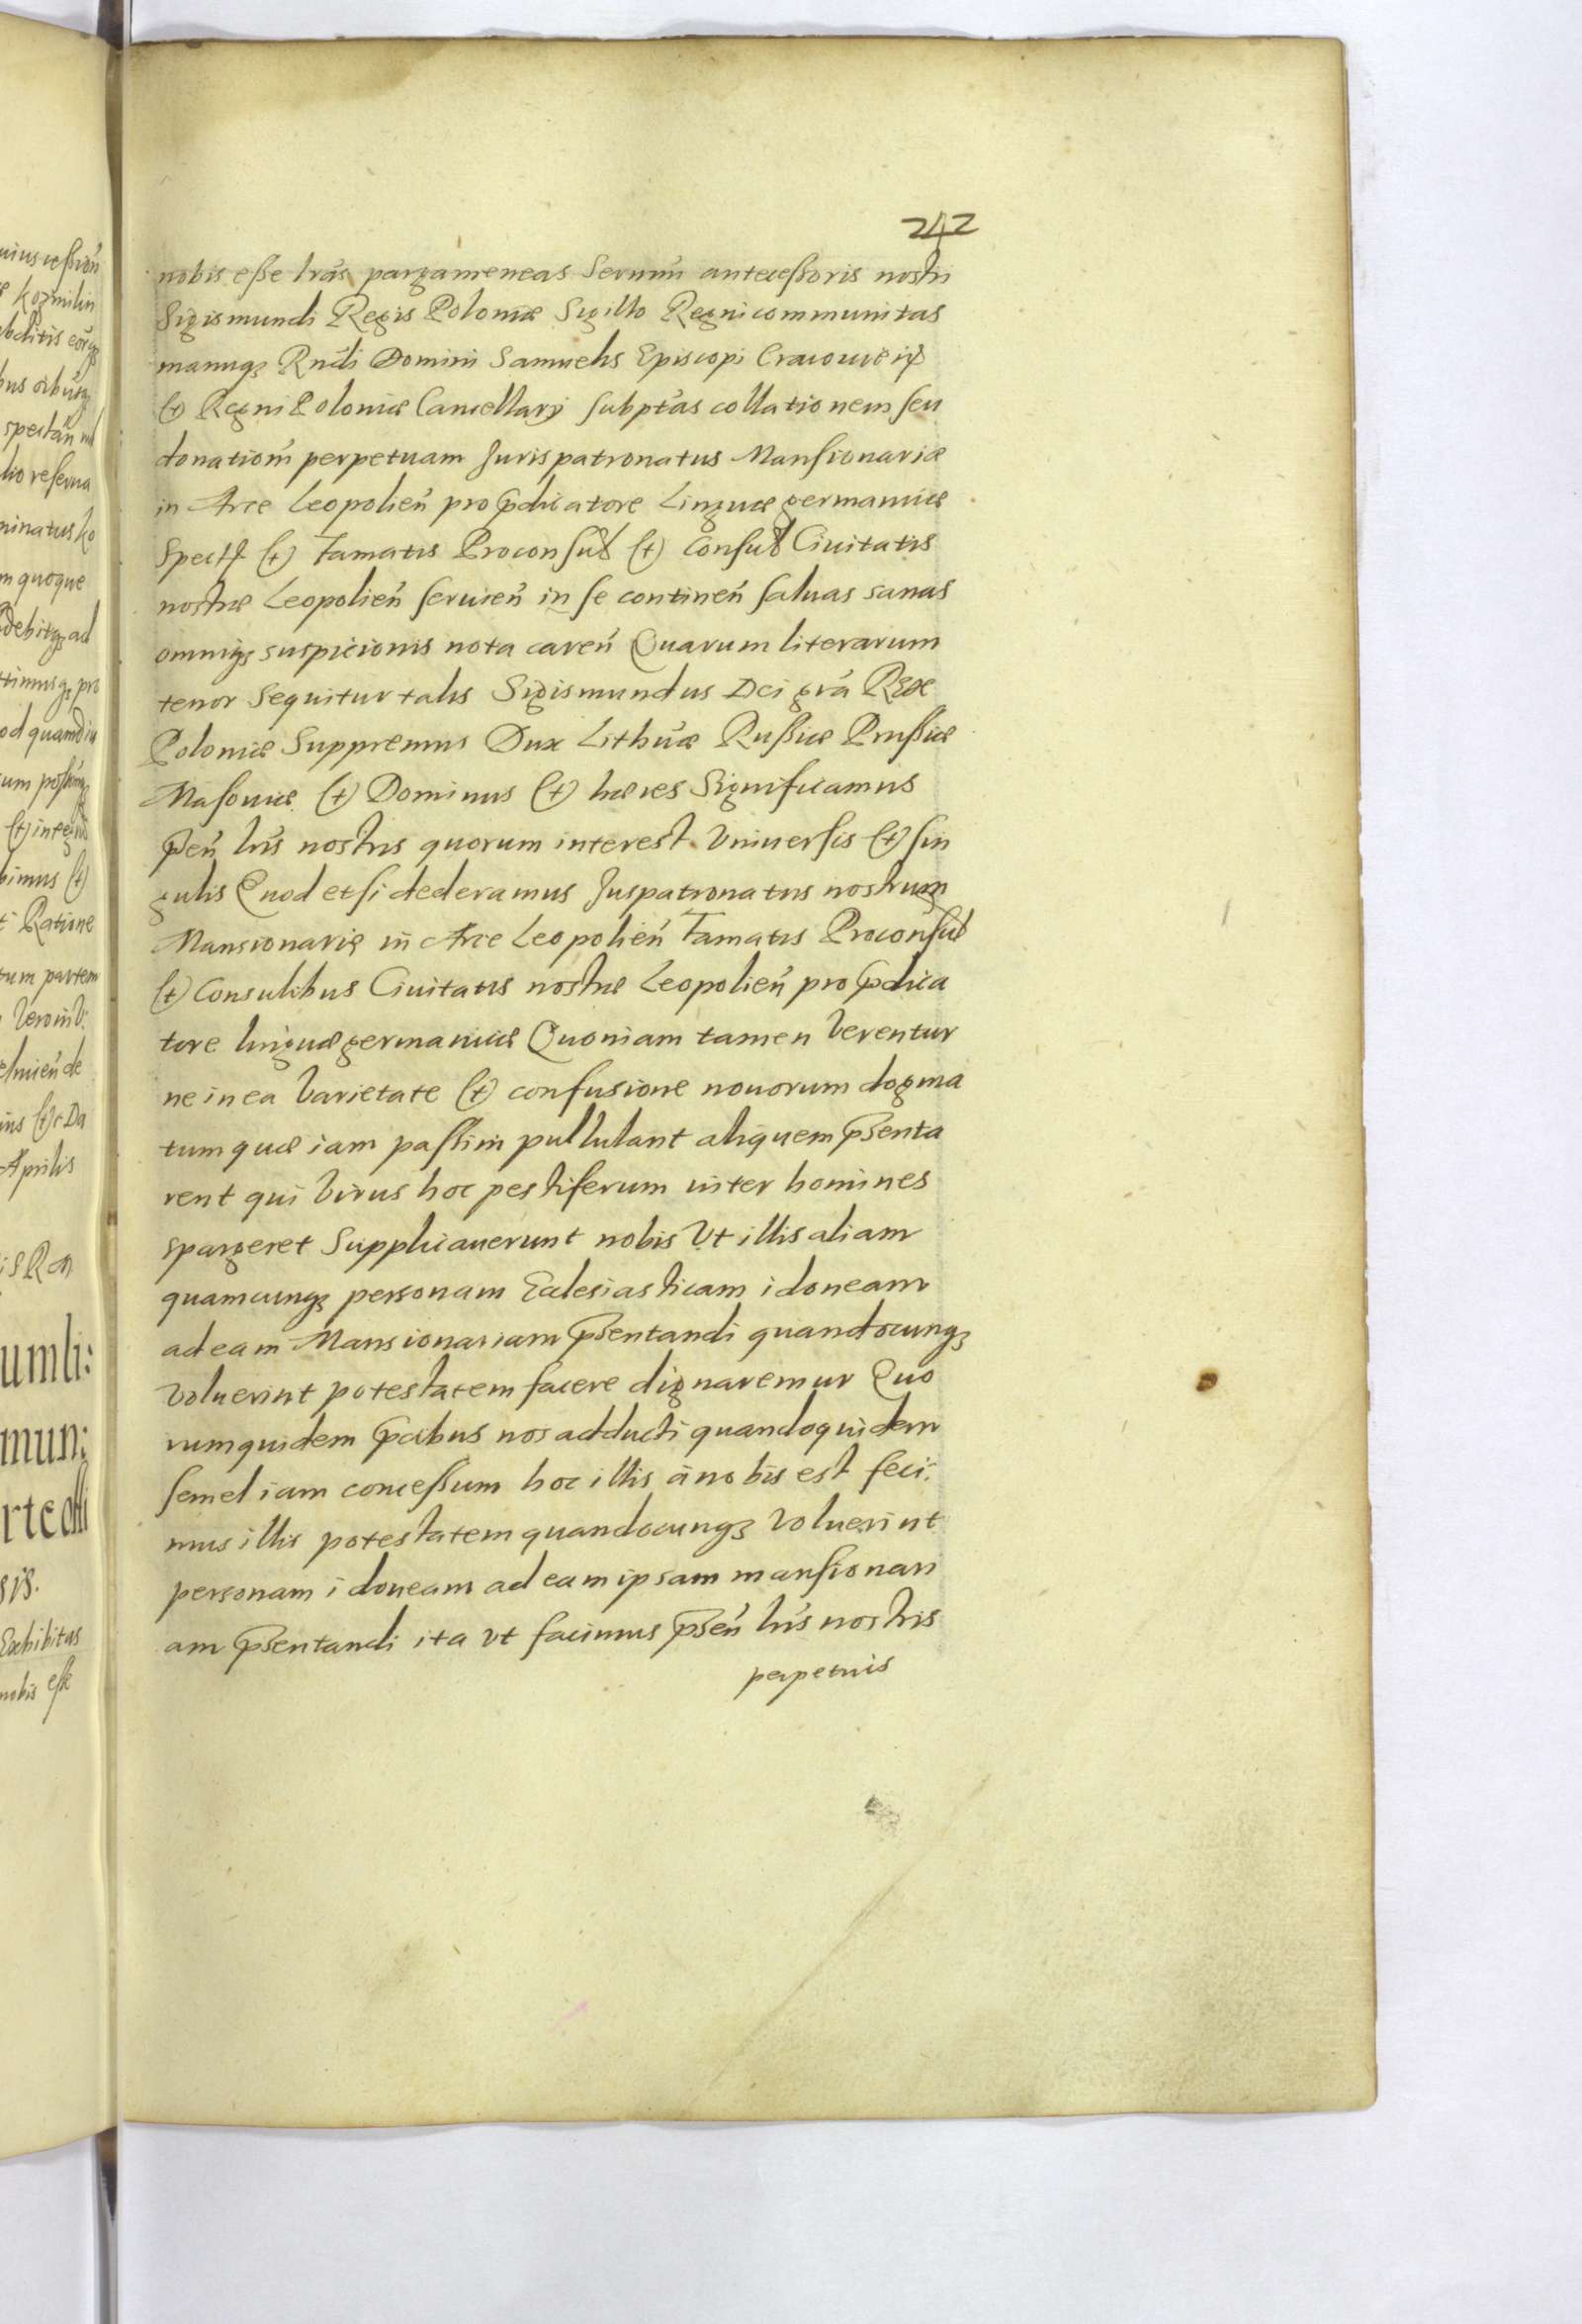 242
nobis esse lr̄as pargameneas Sernmi antecessoris nostri
Sigismundi Regis Poloniæ Sigillo Regni communitas
manuq3 Rndi Domini Samuelis Episcopi Cracouien̄
(et) Regni Poloniæ Cancellarij subptas collationem seu
donationem̄ perpetuam Jurispatronatus Mansionariæ
in Arce Leopolien̄ pro p̄dicatore Linguæ germanicæ
(et) Famatis Proconsul (et) Consul Ciuitatis
nostræ Leopolien̄ seruien̄ in se continen̄ saluas sanas
omniq3 suspicionis nota caren̄ Quarum literarum
tenor Sequitur talis Sigismundus Dei grā Rex
Poloniæ Suppremus Dux Lithuæ Russiæ Prussiæ
Masouiæ (et) Dominus (et) hæres Significamus
p̄sen̄ lr̄is nostris quorum interest Vniuersis (et) sin
gulis Quod etsi dederamus Juspatronatus nostrum
Mansionariæ in Arce Leopolien̄ Famatis Proconsul
(et) Consulibus Ciuitatis nostræ Leopolien̄ pro p̄dica
tore linguæ germanicæ Quoniam tamen Verentur
ne in ea Varietate (et) confusione nouorum dogma
tum quæ iam passim pullulant aliquem p̄senta
rent qui Virus hoc pestiferum inter homines
spargeret Supplicauerunt nobis Vt illis aliam
quamcunq3 personam Ecclesiasticam idoneam
ad eam Mansionariam p̄sentandi quandocunq3
Voluerint potestatem facere dignaremur Quo
rumquidem p̄cibus nos adducti quandoquidem
semel iam concessum hoc illis à nobis est feci:
mus illis potestatem quandocunq3 Voluerint
personam idoneam ad eam ipsam mansionari
am p̄sentandi ita vt facimus p̄sen̄ lr̄is nostris
perpetuis